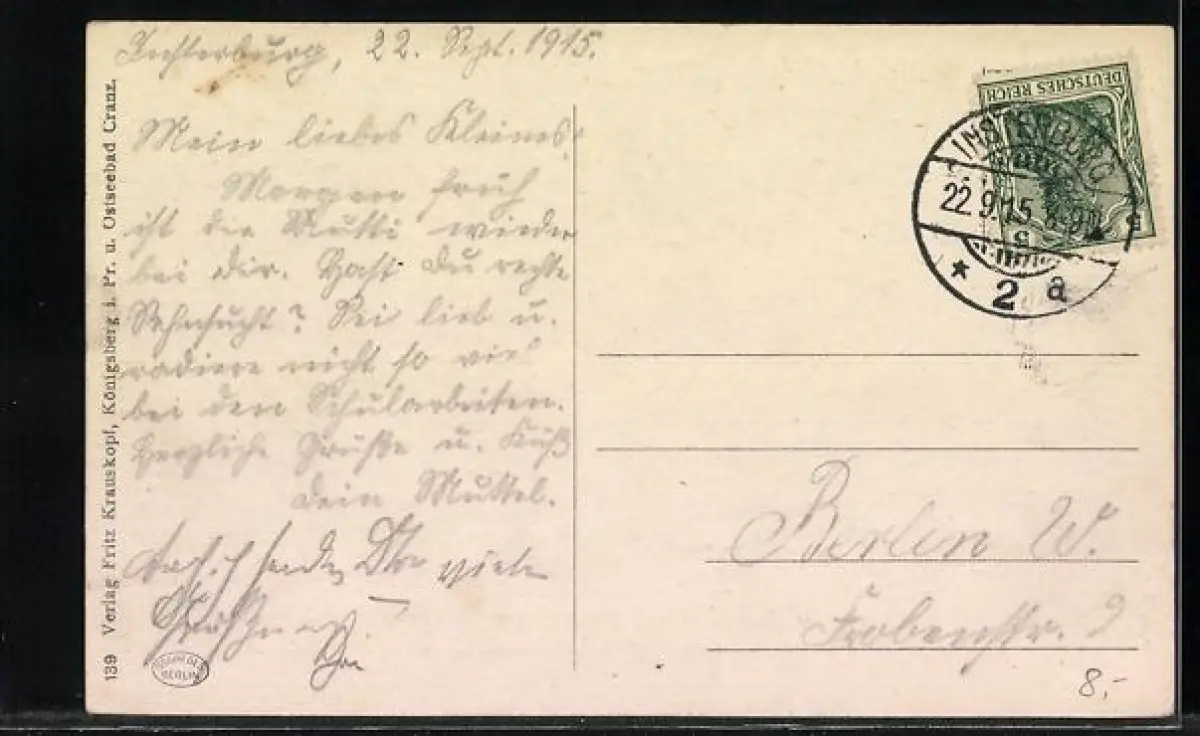 Insterburg, 22. Sept. 1915.
Mein liebes Kleines!
Morgen früh
ist die Mutti wieder
bei dir. Hast du rechte
Sehnsucht? Sei lieb u.
radiere nicht so viel
bei den Schularbeiten.
Herzliche Grüße u. Kuß
dein Muttel.
Auch ich sende Dir viele
Grüße
139 Verlag Fritz Krauskopf, Königsberg i. Pr. u. Ostseebad Cranz.
BERLIN
DEUTSCHES REICH
INSTERBURG
22.9.15
* 2 a
Berlin W.
Frobenstr.
8,-